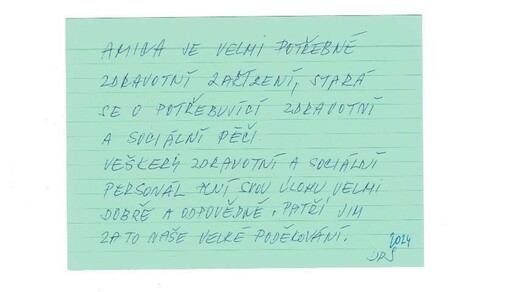 AMIDA JE VELMI POTŘEBNÉ
ZDRAVOTNÍ ZAŘÍZENÍ, STARÁ
SE O POTŘEBUJÍCÍ ZDRAVOTNÍ
A SOCIÁLNÍ PÉČI
VEŠKERÝ ZDRAVOTNÍ A SOCIÁLNÍ
PERSONÁL PLNÍ SVOU ÚLOHU VELMI
DOBŘE A ODPOVĚDNĚ. PATŘÍ JIM
ZA TO NAŠE VELKÉ PODĚKOVÁNÍ.
2024
JDŠ